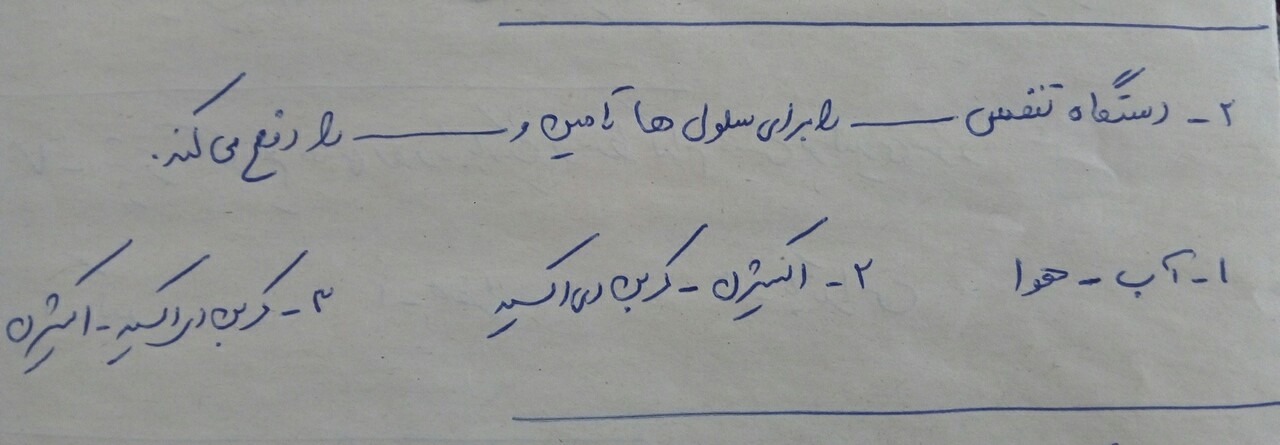 ۲- دستگاه تنفس ـــــــ را برای سلول ها تامین و ـــــــ را دفع می کند.
۱- آب - هوا ۲- اکسیژن - کربن دی اکسید ۳- کربن دی اکسید - اکسیژن